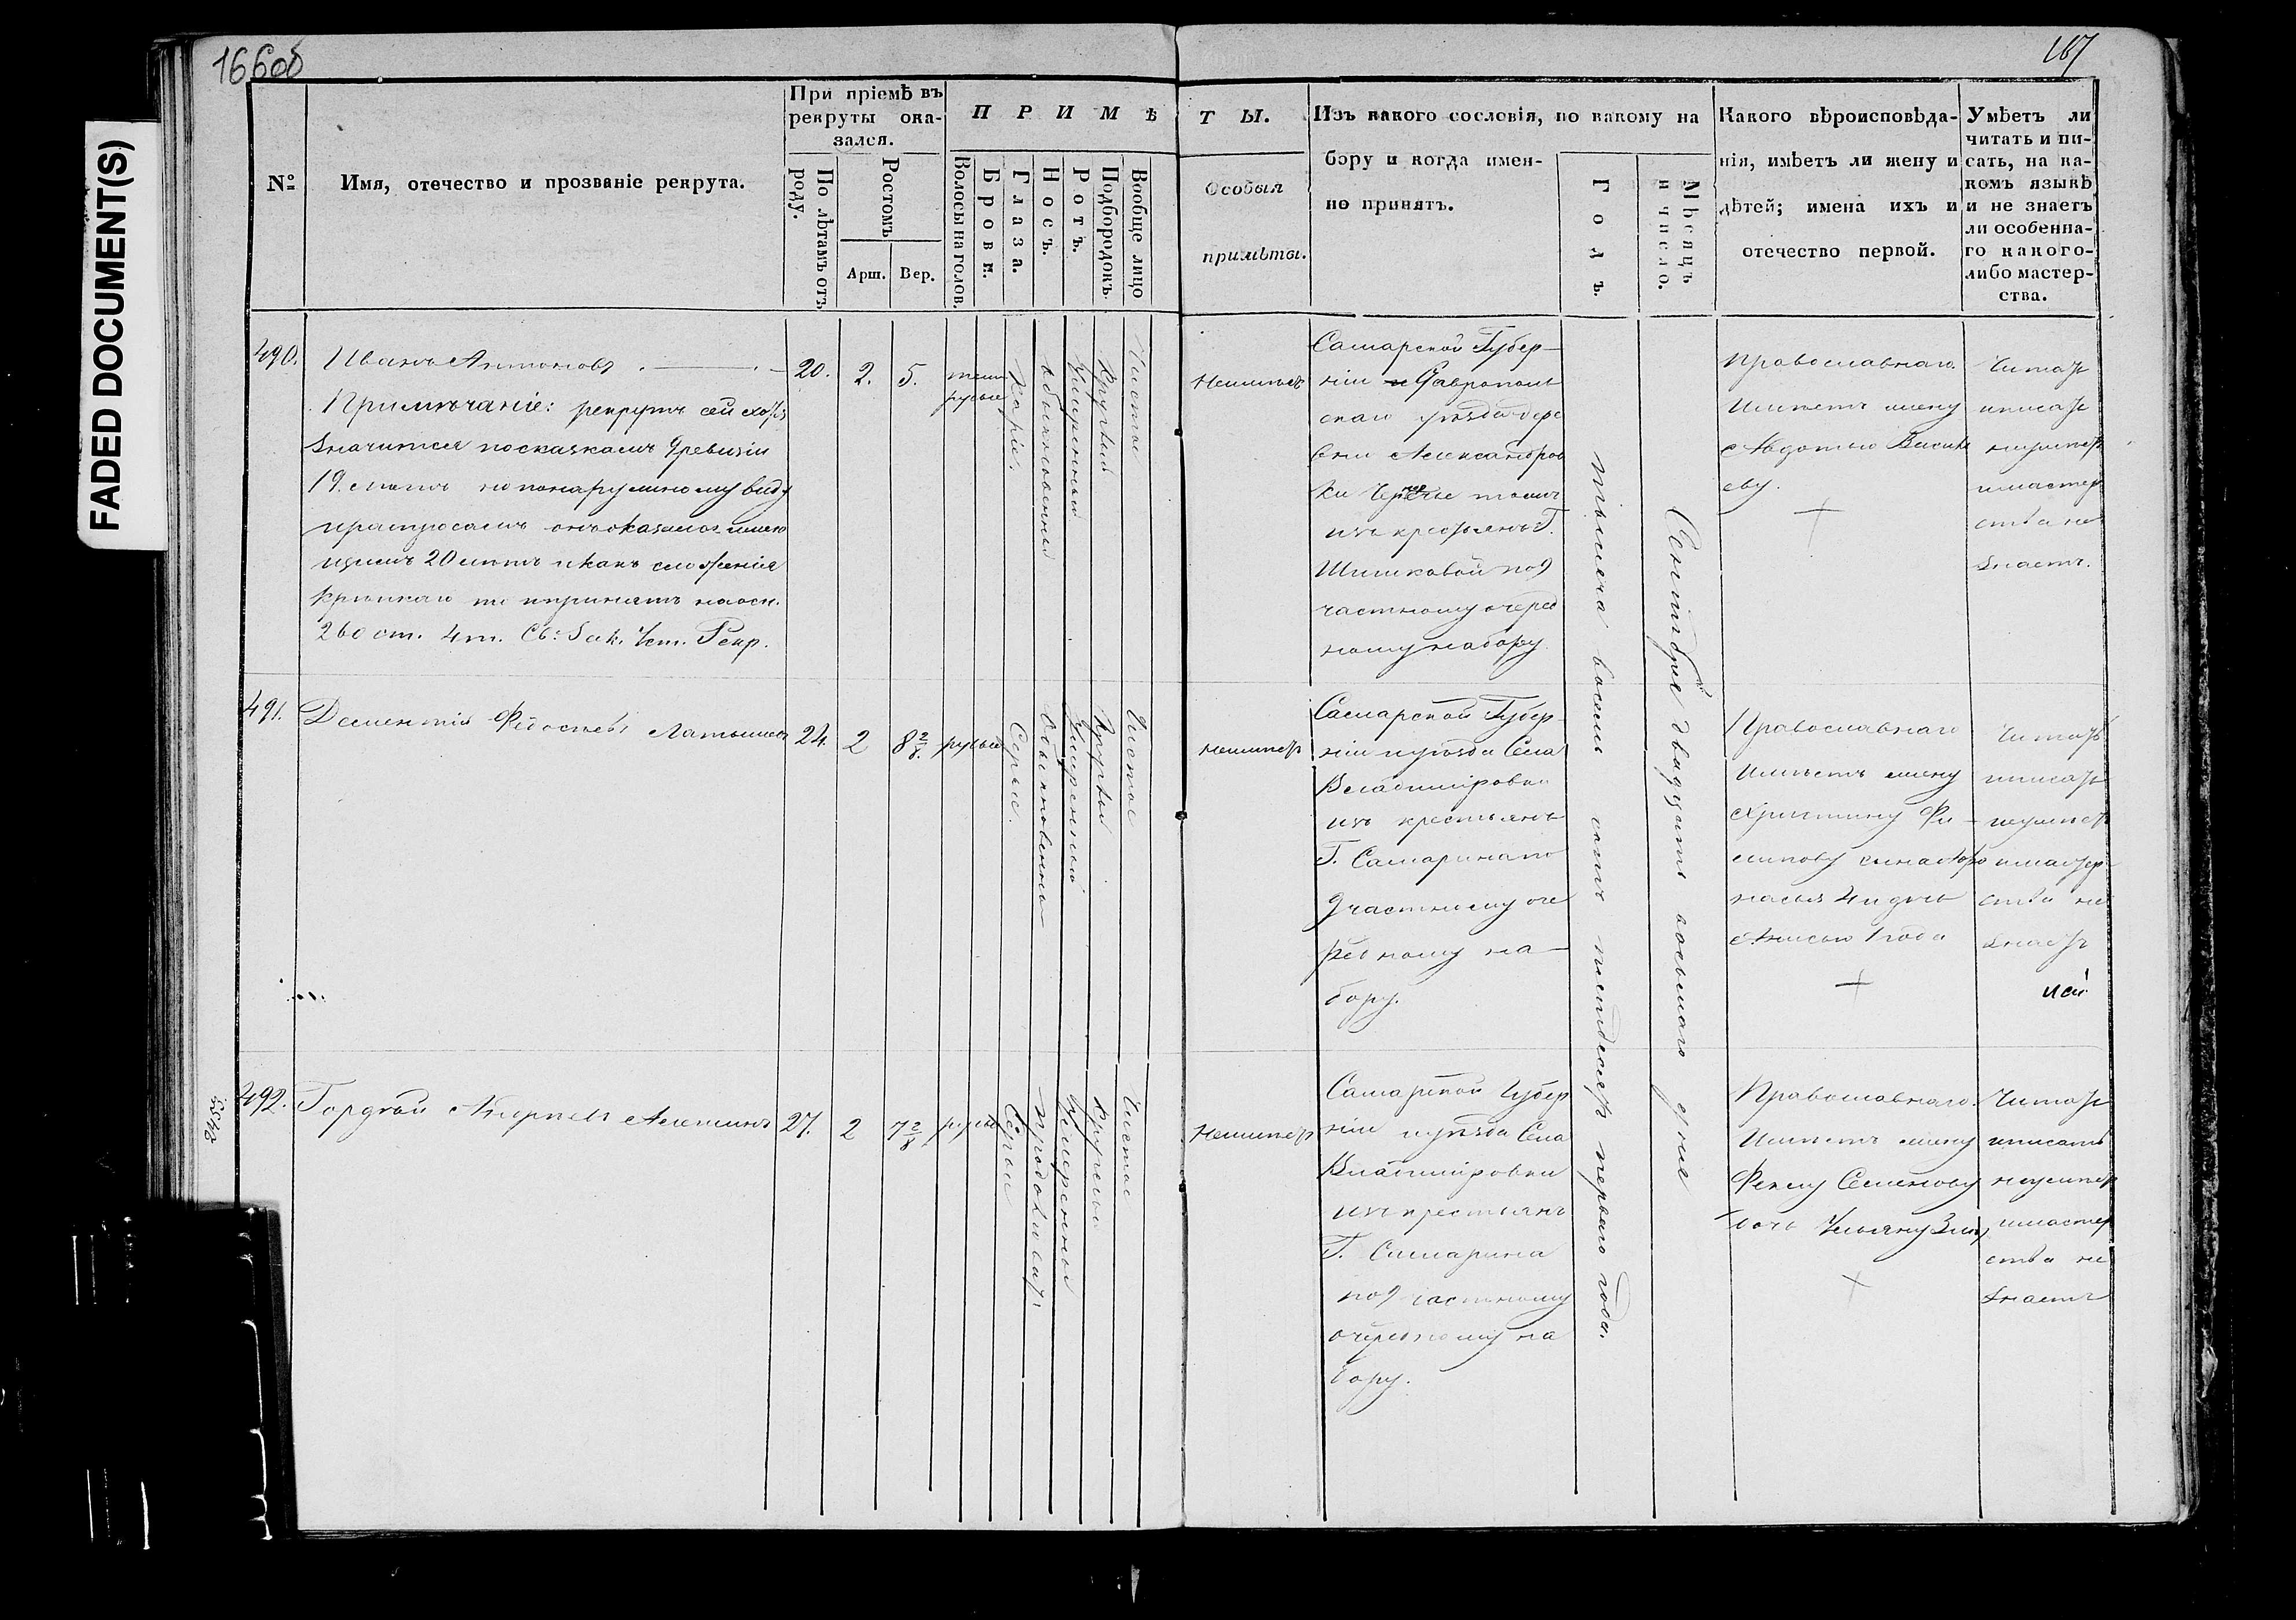 FADED DOCUMENT(S)
166об
167
№
Имя, отечество и прозваніе рекрута.
При пріемѣ въ
рекруты ока-
зался.
По лѣтамъ отъ
роду.
Ростомъ
Арш.
Вер.
ПРИМѢ
Волосы на голов.
Брови.
Глаза.
Носъ.
Ротъ.
Подбородокъ.
Вообще лицо
ТЫ.
Особыя
примѣты.
Изъ какого сословія, по какому на
бору и когда имен-
но принятъ.
Годъ.
Мѣсяцъ
и число.
Какого вѣроисповѣда-
нія, имѣетъ ли жену и
дѣтей; имена ихъ и
отечество первой.
Умѣетъ ли
читать и пи-
сать, на ка-
комъ языкѣ
и не знаетъ
ли особенна-
го какого-
либо мастер-
ства.
490.
Иванъ Антоновъ
Примѣчаніе: рекрутъ сей хотя
значится по сказкамъ 9 ревизіи
19. лѣтъ но по наружному виду
и разпросамъ онъ оказался имею
щимъ 20 лѣтъ и какъ сложенія
крѣпкаго то и принятъ на осн.
260 ст. 4 т. Св: Зак. Уст. Рекр.
20.
2.
5.
темн
русые
Каріе.
обыкновенный
Умѣренный
Круглый
Чистое
Неимѣетъ
Самарской Губер-
ніи Ставрополь
скаго уѣзда дере
вни Александров
ки тожъ
изъ крестьянъ Г.
Шишковой по 9
частному очеред
ному набору.
тысяча восемь сотъ пятдесятъ перваго года.
Сентября двадцать восьмаго дня
Православнаго.
Имѣетъ жену
Авдотью Василь
еву.
Читать
и писать
неумѣетъ
и мастер
ства не
знаетъ.
491.
Дементій Федосѣевъ Латышевъ
24.
2
8 2/8.
русые
Серые.
Обыкновенный
Умѣренный
Круглый
Чистое
неимѣетъ
Самарской Губер-
ніи и уѣзда Села
Владиміровки
изъ крестьянъ
Г. Самарина по
9 частному оче
редному на-
бору.
Православнаго
Имѣетъ жену
Христину Фи-
липову сына
4 и дочь
Анисью 1 года
Читать
и писать
неумѣетъ
и мастер
ства не
знаетъ
492.
Гордѣй Карпевъ Алешинъ
27.
2
7 2/8
русые
Серые
продолговатъ
Умѣренный
Круглый
Чистое
Неимѣетъ
Самарской Губер
ніи и уѣзда Села
Владиміровки
изъ крестьянъ
Г. Самарина
по 9 частному
очередному на
бору.
Православнаго.
Имѣетъ жену
Феклу Семенову
дочь Ульяну
Читать
и писать
неумѣетъ
и мастер
ства не
знаетъ